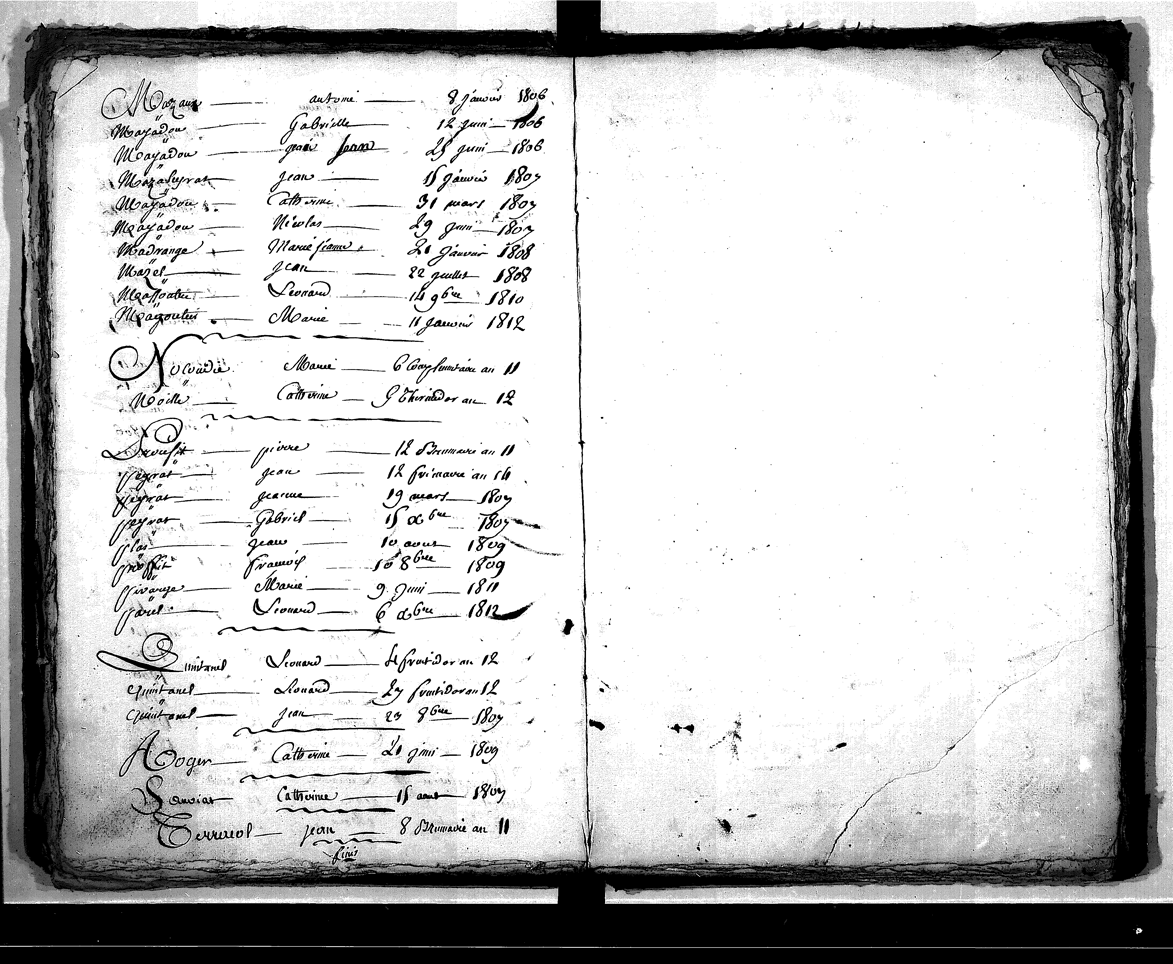 Mazaux antoine 8 janvier 1806
Mazadou Gabrielle 12 juin 1806
Mazadou jean Jean 25 juin 1806
Mazaleyrat Jean 15 janvier 1807
Mazadou Catherine 31 mars 1807
Mazadou Nicolas 29 juin 1807
Madrange Marie jeanne 21 janvier 1808
Mazel Jean 22 juillet 1808
Massoubre Léonard 14 9bre 1810
Magoutier Marie 11 janvier 1812
Marie 6 Complementaire an 11
Noille Catherine 9 Thermidor an 12
Proufit pierre 12 Brumaire an 11
peyrat jean 12 frimaire an 14
peyrat jeanne 19 mars 1807
peyrat Gabriel 15 Xbre 1807
plas jean 10 aout 1809
proffit francois 10 8bre 1809
Marie 9 Juin 1811
parel Léonard 6 Xbre 1812
Quintanel Léonard 4 fruitidor an 12
quintanel Léonard 27 fruitidor an 12
quintanel Jean 23 8bre 1807
Roger Catherine 21 juin 1809
Catherine 15 aout 1807
Terrieol jean 8 Brumaire an 11
finis